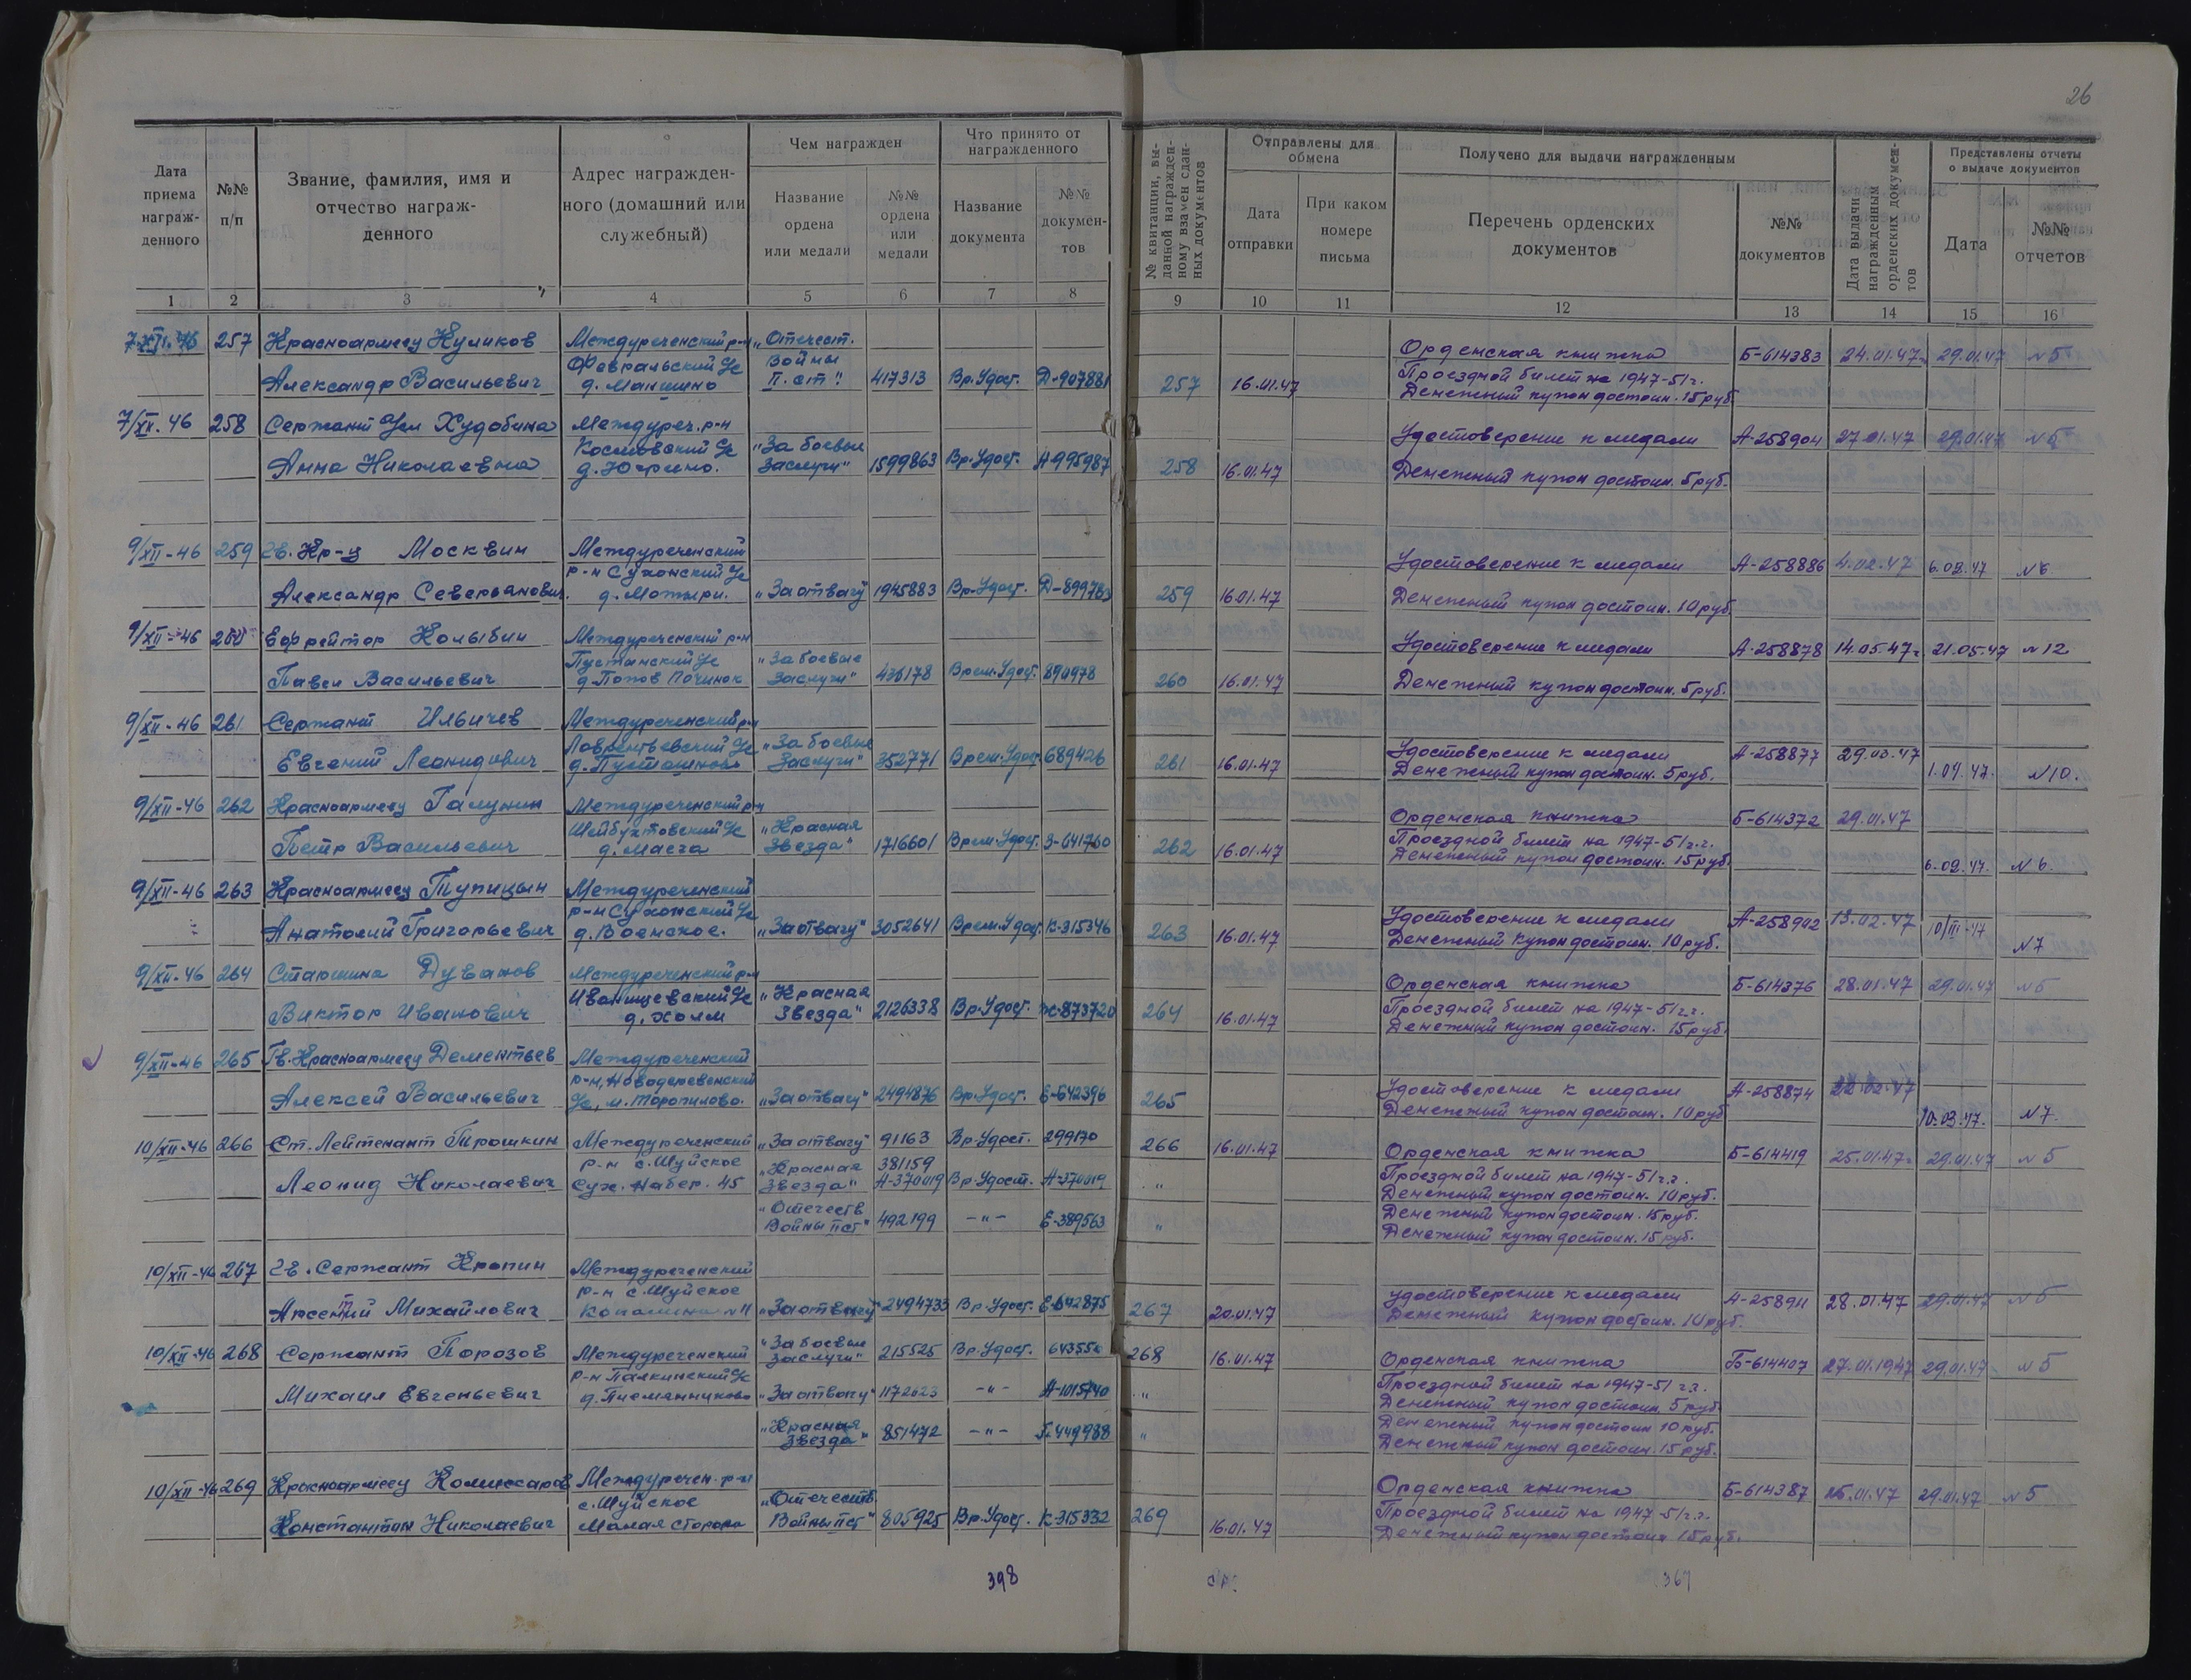 26
Дата приема награж-денного
№№ п/п
Звание, фамилия, имя и отчество награж-денного
Адрес награжден-ного (домашний или служебный)
Чем награжден
Название ордена или медали
№№ ордена или медали
Что принято от награжденного
Название документа
№№ докумен-тов
№ квитанции, вы-данной награжден-ному взамен сдан-ных документов
Отправлены для обмена
Дата отправки
При каком номере письма
Получено для выдачи награжденным
Перечень орденских документов
№№ документов
Дата выдачи награжденным орденских докумен-тов
Представлены отчеты о выдаче документов
Дата
№№ отчетов
1 2 3 4 5 6 7 8 9 10 11 12 13 14 15 16
257 Красноармеец Куликов Междуреченский р-н „Отечест. Орденская книжка Б-614383 24.01.47г. 29.01.47 №5
Февральский Войны Проездной билет на 1947-51г.
Александр Васильевич д. Маншино II. ст." 417313 Вр.Удост. Д-907881 257 16.01.47 Денежный купон достоин. 15руб.
7/XII.46 258 Сержант Худобина Междуреч. р-н Удостоверение к медали А-258904 27.01.47 29.01.47 №5
„За боевые
Анна Николаевна д. Юфсино. Заслуги" 1599863 Вр.Удост. Н-995987 258 16.01.47 Денежный купон достоин. 5руб.
9/XII-46 259 Гв. Кр-ц Москвин Междуреченский Удостоверение к медали А-258886 4.02.47 6.02.47 №6
р-н Сухонский
Александр Северьянович. д. Мотыри. „За отвагу" 1945883 Вр.Удост. Д-899783 259 16.01.47 Денежный купон достоин. 10руб.
9/XII-46 260 Ефрейтор Колыбин Междуреченский р-н Удостоверение к медали А-258878 14.05.47г. 21.05.47 №12
Пустанский „За боевые
Павел Васильевич д. Попов Починок Заслуги" 436178 Врем.Удост. 890978 260 16.01.47 Денежный купон достоин. 5руб.
9/XII-46 261 Сержант Ильичев Междуреченский р-н
Лаврентьевский „За боевые Удостоверение к медали А-258877 29.03.47
Евгений Леонидович д. Пустошново Заслуги" 352771 Врем.Удост. 689426 261 16.01.47 Денежный купон достоин. 5руб. 1.04.47. №10.
9/XII-46 262 Красноармеец Галунин Междуреченский р-н Орденская книжка Б-614372 29.01.47
Шейбухтовский „Красная Проездной билет на 1947-51г.г.
Петр Васильевич д. Масга Звезда" 1716601 Врем.Удост. З-641760 262 16.01.47 Денежный купон достоин. 15руб. 6.02.47. №6.
9/XII-46 263 Красноармеец Тупицын Междуреченский
р-н Сухонский Удостоверение к медали А-258902 13.02.47 10/III-47
Анатолий Григорьевич д. Военское. „За отвагу" 3052641 Врем.Удост. К-315346 263 16.01.47 Денежный купон достоин. 10руб. №7
9/XII-46 264 Старшина Дуванов Междуреченский р-н Орденская книжка Б-614376 28.01.47 29.01.47 №5
Иванищевский „Красная Проездной билет на 1947-51г.г.
Виктор Иванович д. Холм Звезда" 2126338 Вр.Удост. Ж-873720 264 16.01.47 Денежный купон достоин. 15руб.
9/XII-46 265 Гв. Красноармеец Дементьев Междуреченский
р-н, Новодеревенский Удостоверение к медали А-258874 22.02.47
Алексей Васильевич м. Торопилово. „За отвагу" 2494876 Вр.Удост. Е-642396 265 Денежный купон достоин. 10руб. 10.03.47. №7.
10/XII-46 266 Ст. Лейтенант Трошкин Междуреченский „За отвагу" 91163 Вр.Удост. 299170 266 16.01.47 Орденская книжка Б-614419 25.01.47г. 29.01.47 №5
р-н с. Шуйское „Красная 381159 Проездной билет на 1947-51г.г.
Леонид Николаевич Сух. Набер. 45 Звезда" А-370019 Вр.Удост. А-370019 " Денежный купон достоин. 10руб.
„Отечеств Денежный купон достоин. 15руб.
Войны II ст" 492199 -"- Е-389563 " Денежный купон достоин. 15руб.
10/XII-46 267 Гв. Сержант Кропин Междуреченский
р-н с. Шуйское Удостоверение к медали А-258911 28.01.47 29.01.47 №5
Арсентий Михайлович №11 „За отвагу" 2494733 Вр.Удост. Е-642875 267 20.01.47 Денежный купон достоин. 10руб.
10/XII-46 268 Сержант Порозов Междуреченский „За боевые заслуги" 215525 Вр.Удост. 268 16.01.47 Орденская книжка Б-614407 27.01.1947 29.01.47 №5
р-н Палкинский Проездной билет на 1947-51г.г.
Михаил Евгеньевич д. Племянниково „За отвагу" 1172623 -"- А-1015740 " Денежный купон достоин. 5руб.
„Красная Денежный купон достоин 10руб.
Звезда" 851472 -"- 449988 " Денежный купон достоин. 15руб.
10/XII-46 269 Красноармеец Комиссаров Междуречен. р-н Орденская книжка Б-614387 25.01.47 29.01.47 №5
с. Шуйское „Отечеств Проездной билет на 1947-51г.г.
Константин Николаевич Малая сторона Войны II ст" 805925 Вр.Удост. К-315332 269 16.01.47 Денежный купон достоин 15руб.
398
367